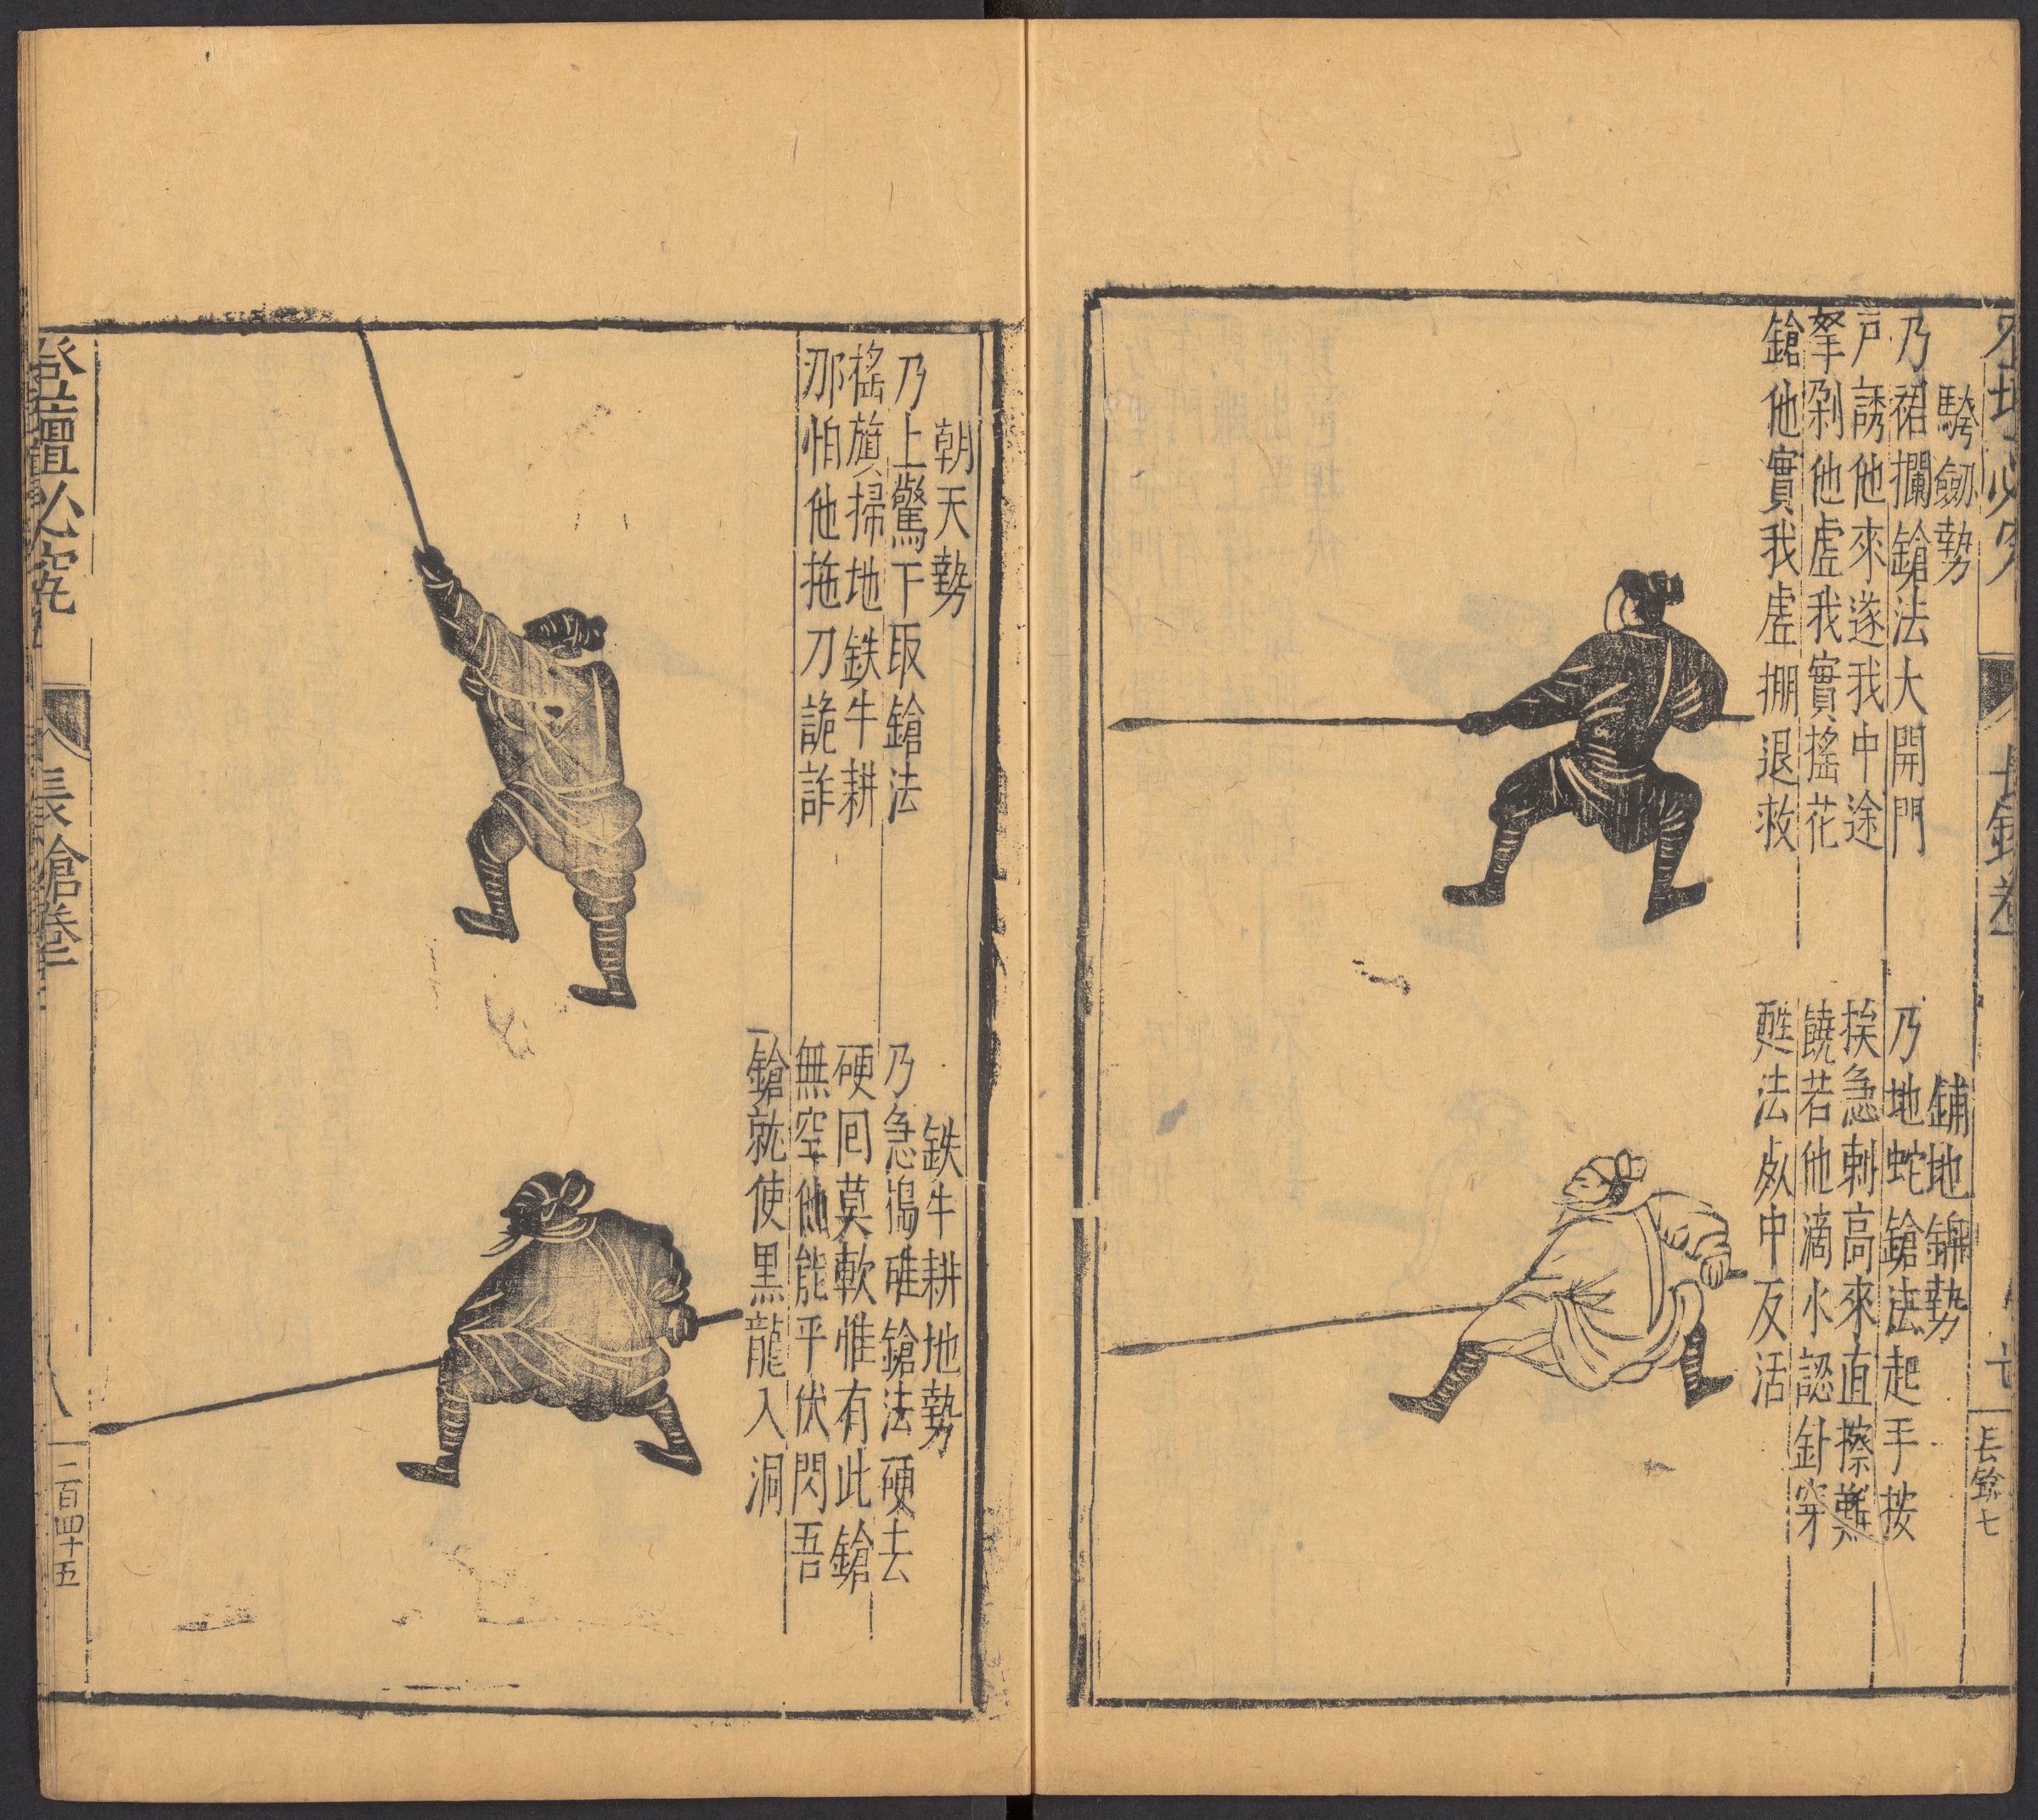 長鎗七
騎劒勢
乃裙攔鎗法大開門
戶誘他來遂我中途
拏剁他虛我實搖花
鎗他實我虛掤退救
鋪地錦勢
乃地蛇鎗法起手按
挨急刺高來直擦難
饒若他滴水認針穿
甦法死中反活
朝天勢
乃上驚下取鎗法
搖旗掃地鉄牛耕
那怕他拖刀詭詐
鉄牛耕地勢
乃急搗碓鎗法硬去
硬回莫軟惟有此鎗
無空他能平伏閃吾
鎗就使黑龍入洞
登壇必究
長鎗卷
八
二百四十五